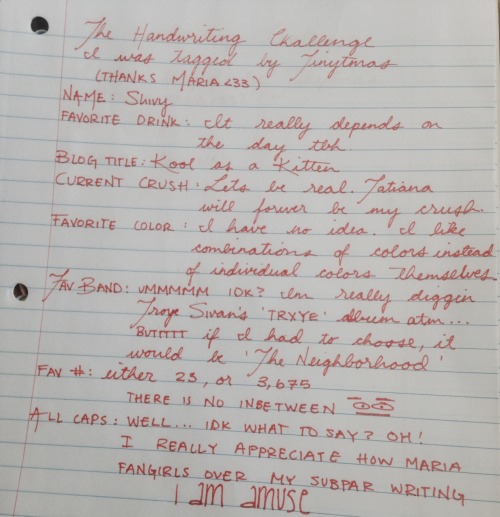 The Handwriting Challenge
I was tagged by Tinytmas
(THANKS MARIA <33)
NAME: Shivy
FAVORITE DRINK: It really depends on
the day tbh
BLOG TITLE: Kool as a Kitten
CURRENT CRUSH: Lets be real. Tatiana
will forever be my crush.
FAVORITE COLOR: I have no idea. I like
combinations of colors instead
of individual colors themselves
FAV BAND: UMMMMM IDK? Im really diggin
Troye Sivan's 'TRXYE' album atm...
BUTTTT if I had to choose, it
would be 'The Neighborhood'
FAV #: either 23, or 3,675
THERE IS NO INBETWEEN
ALL CAPS: WELL... IDK WHAT TO SAY? OH!
I REALLY APPRECIATE HOW MARIA
FANGIRLS OVER MY SUBPAR WRITING
I am amuse